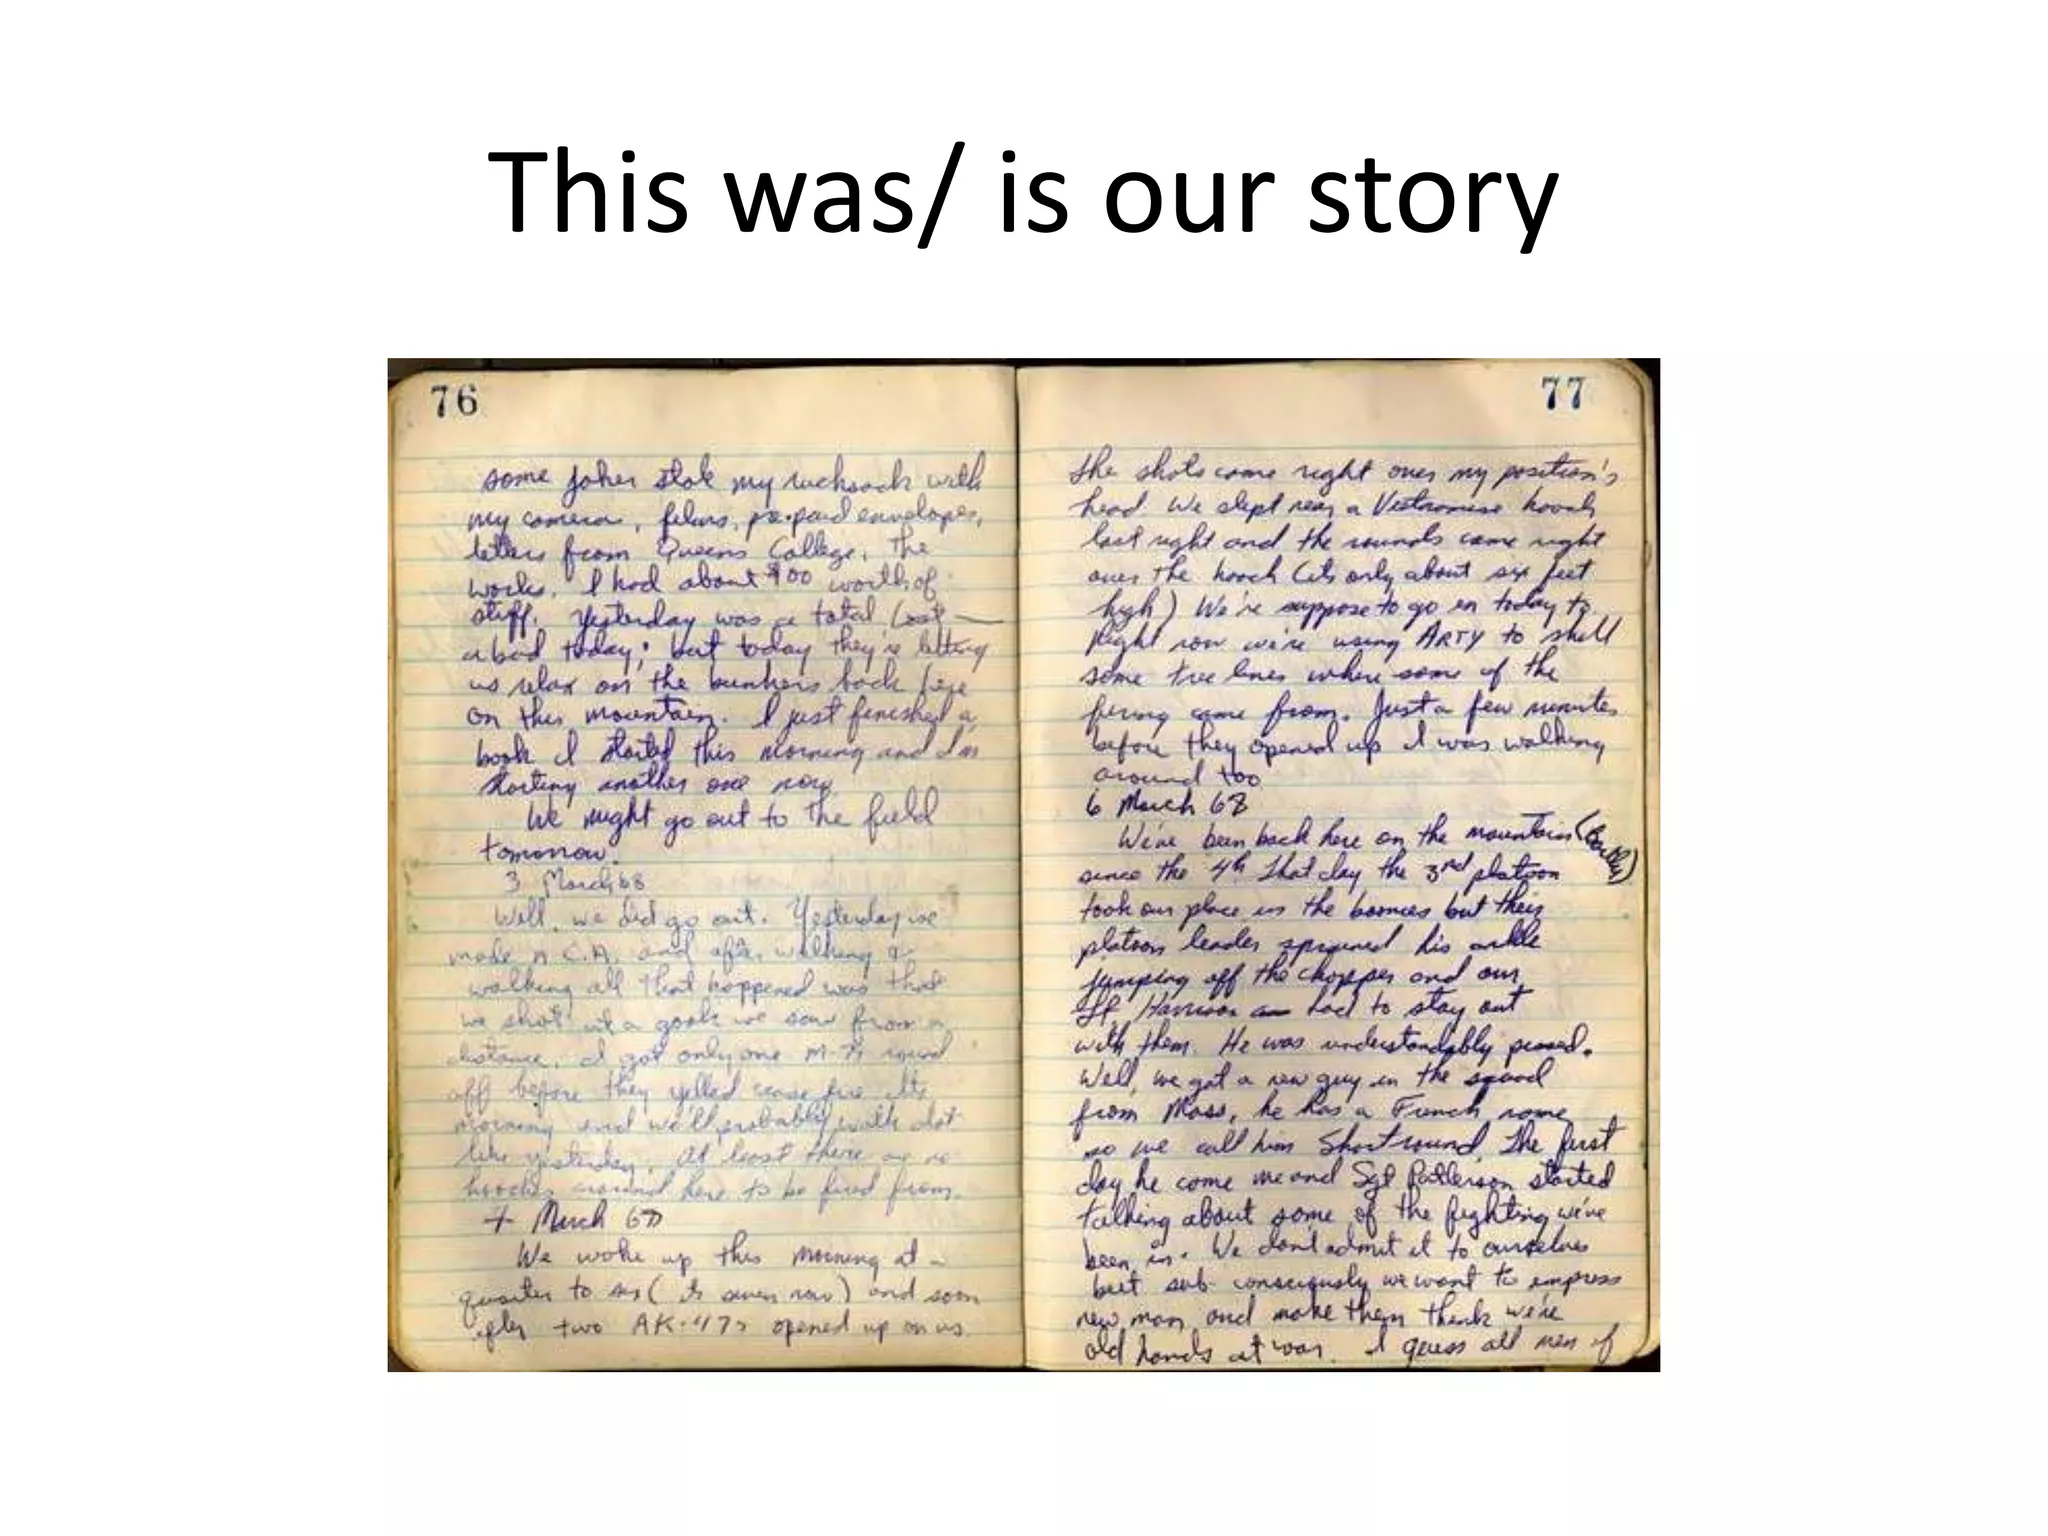 This was/ is our story
76
some joker stole my rucksack with
my camera, films, pre-paid envelopes,
letters from Queens College. The
works. I had about $100 worth of
stuff. Yesterday was a total
a bad today; but today they're letting
us relax on the bunkers back here
on this mountain. I just finished a
book I started this morning and I'm
starting another one now.
We might go out to the field
tomorrow.
3 March 68
Well, we did go out. Yesterday we
made a C.A. and after walking &
walking all that happened was that
we shot at a gook we saw from a
distance. I got only one M-79 round
off before they yelled cease fire. Its
morning and we'll probably walk alot
like yesterday. At least there are no
hooches around here to be fired from.
4 March 68
We woke up this morning at a
quarter to six (its seven now) and soon
after two AK-47s opened up on us.
77
The shots came right over my position's
head. We slept near a Vietnamese hooch
last night and the rounds came right
over the hooch (its only about six feet
high) We're suppose to go in today to.
Right now we're using ARTY to shell
some tree lines where some of the
firing came from. Just a few minutes
before they opened up I was walking
around too
6 March 68
We've been back here on the mountain
since the 4th. That day the 3rd platoon
took our place in the boonies but their
platoon leader sprained his ankle
jumping off the chopper and our
Lt Harrison had to stay out
with them. He was understandably pissed.
Well, we got a new guy in the squad
from Mass, he has a French name
so we call him Shortround. The first
day he come me and Sgt Patterson started
talking about some of the fighting we've
been in. We don't admit it to ourselves
but sub-consciously we want to impress
new men and make them think we're
old hands at war. I guess all men of